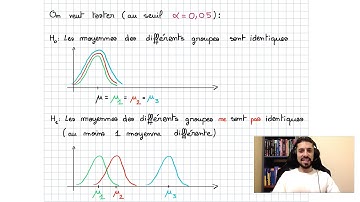 On veut tester (au seuil α = 0,05) :
H₀ : Les moyennes des différents groupes sont identiques
μ = μ₁ = μ₂ = μ₃
H₁ : Les moyennes des différents groupes ne sont pas identiques
(au moins 1 moyenne différente)
μ₁ μ₂ μ₃